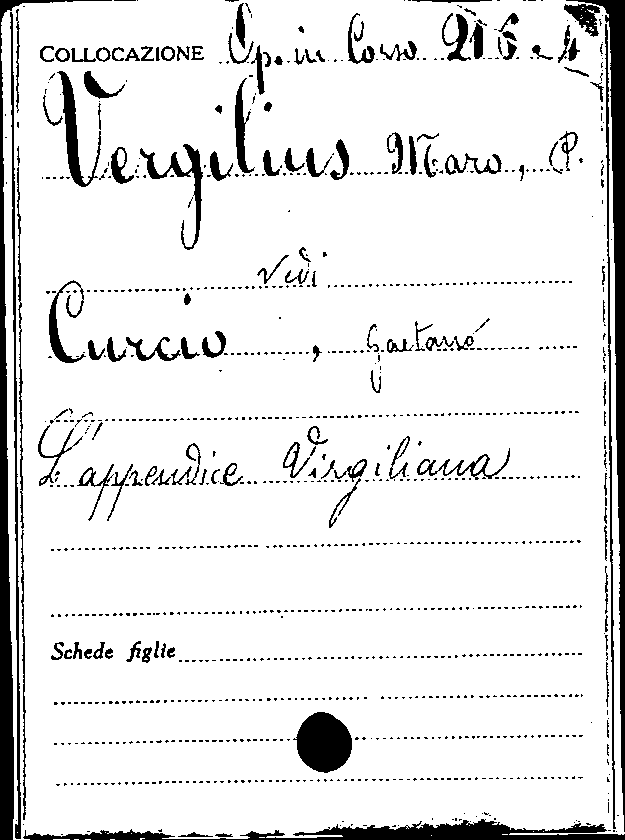 COLLOCAZIONE Op. in Corso 216-4
Vergilius Maro, P.
Vedi
Curcio, Gaetano
L'appendice Virgiliana
Schede figlie